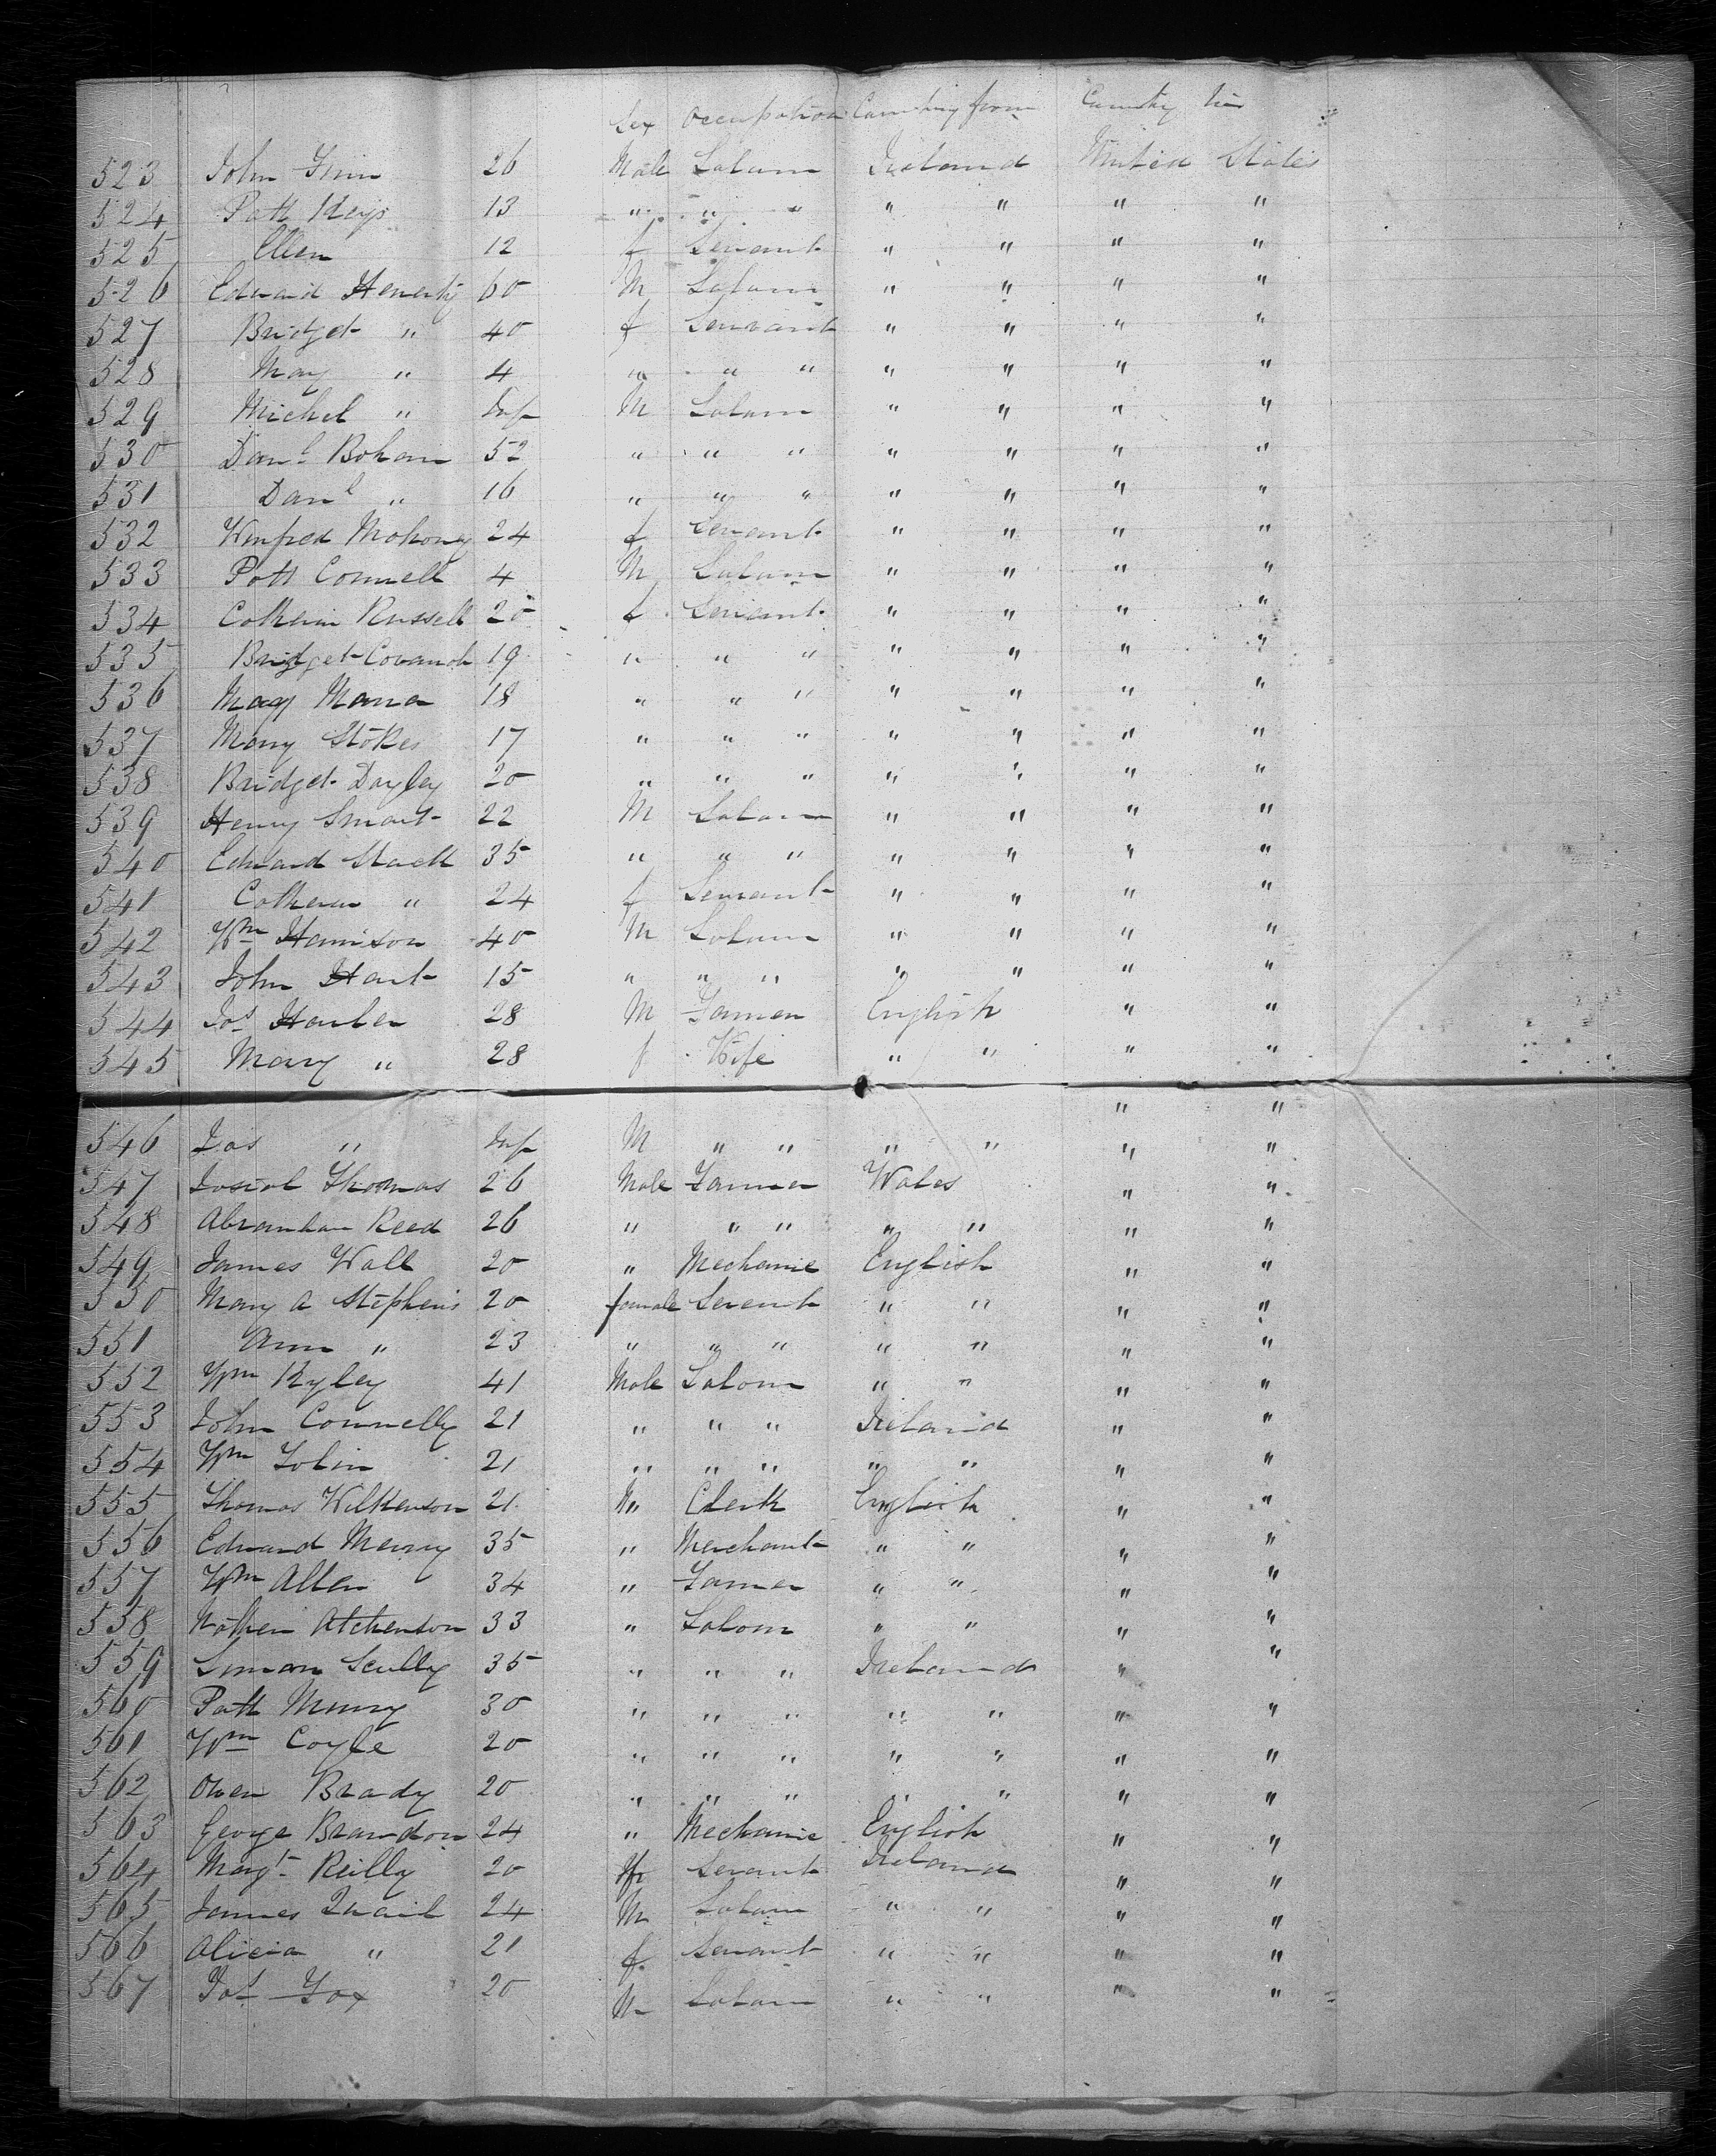 Sex Occupation Country from Country to
523 John Finn 26 Male Labour Ireland United States
524 Patt Keys 13 " " " " " " "
525 Ellen 12 f Servant " " " "
526 Edward Henerty 60 M Labour " " " "
527 Bridget " 40 f Servant " " " "
528 Mary " 4 " " " " " " "
529 Michel " Inf M Labour " " " "
530 Danl Bohan 52 " " " " " " "
531 Danl " 16 " " " " " " "
532 Winfred Mohony 24 f Servant " " " "
533 Patt Connell 4 M Labour " " " "
534 Catherin Russell 20 f Servant " " " "
535 Bridget Covanah 19 " " " " " " "
536 Mary Mara 18 " " " " " " "
537 Mary Stokes 17 " " " " " " "
538 Bridget Dayley 20 " " " " " " "
539 Henry Smart 22 M Labour " " " "
540 Edward Stack 35 " " " " " " "
541 Catherin " 24 f Servant " " " "
542 Wm Harrison 40 M Labour " " " "
543 John Hart 15 " " " " " " "
544 Jos Harber 28 M Farmer English " "
545 Mary " 28 f Wife " " " "
" "
546 Jas " Inf M " " " " " "
547 Josiah Thomas 26 Male Farmer Wales " "
548 Abramham Reed 26 " " " " " " "
549 James Wall 20 " Mechanic English " "
550 Mary A Stephens 20 female Servent " " " "
551 Ann " 23 " " " " " " "
552 Wm Ryley 41 Male Labour " " " "
553 John Connelly 21 " " " Ireland " "
554 Wm Tobin 21 " " " " " " "
555 Thomas Wilkenson 21 " Clerk English " "
556 Edward Merry 35 " Merchant " " " "
557 Wm Allen 34 " Farmer " " " "
558 Nathen Atchenson 33 " Labour " " " "
559 Simon Scully 35 " " " Ireland " "
560 Patt Murry 30 " " " " " " "
561 Wm Coyle 20 " " " " " " "
562 Owen Brady 20 " " " " " " "
563 George Brandon 24 " Mechanic English " "
564 Margt Reilly 20 f Servant Ireland " "
565 James Quail 24 M Labour " " " "
566 Alicia " 21 f Servant " " " "
567 Jas Fox 20 M Labour " " " "